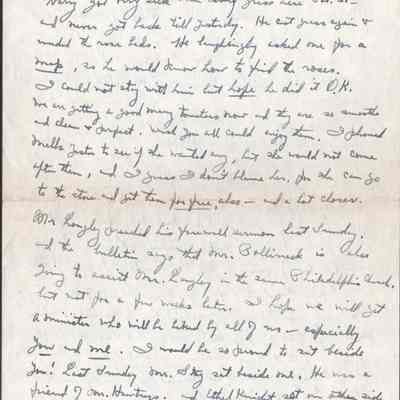 Harry got very sick
and never got back till yesterday. He cut grass again &
weeded the rose beds. He laughingly asked me for a
map, so he would know how to find the roses.
I could not stay with him but hope he did it O.K.
We are getting a good many tomatoes now and they are so smooth
and clean & perfect. Wish you all could enjoy them. I phoned
to see if she wanted any, but she would not come
after them, and I guess I don't blame her, for she can go
to the store and get them for free, also - and a lot closer.
Mr Langley preached his farewell sermon last Sunday.
and the bulletin says that Mr. is also
going to assist Mr. Langley in the same Philadelphia Church.
but not for a few weeks later. I hope we will get
a minister who will be liked by all of us - especially
you and me. I would be so proud to sit beside
you! Last Sunday Mr. sat beside me. He was a
friend of Mr. and Ethel Knight sat on other side